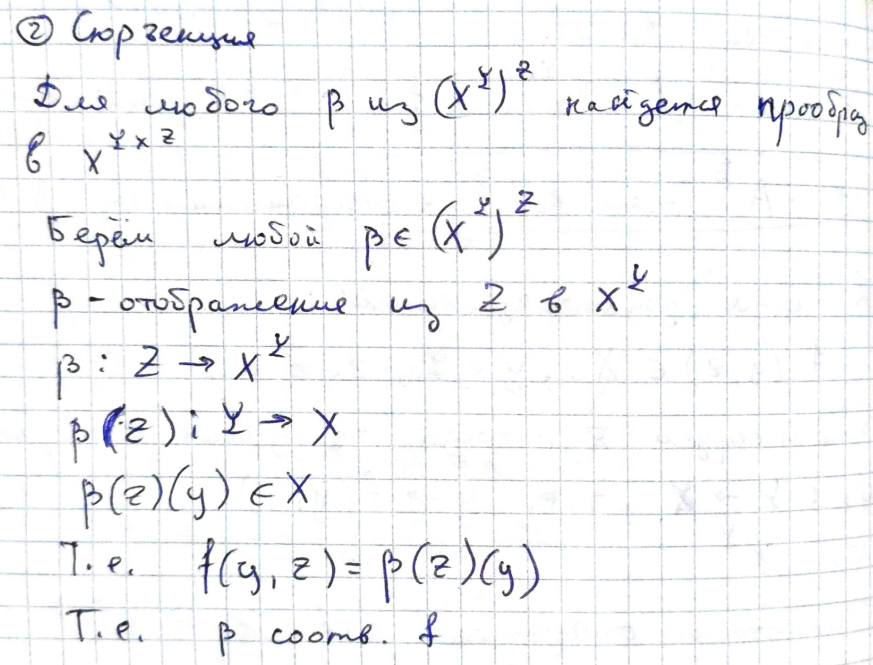 ② Сюръекция
Для любого β из (X^Y)^Z найдется прообраз
в X^{Y×Z}
Берём любой β ∈ (X^Y)^Z
β - отображение из Z в X^Y
β : Z → X^Y
β(z) : Y → X
β(z)(y) ∈ X
Т.е. f(y, z) = β(z)(y)
Т.е. β соотв. f